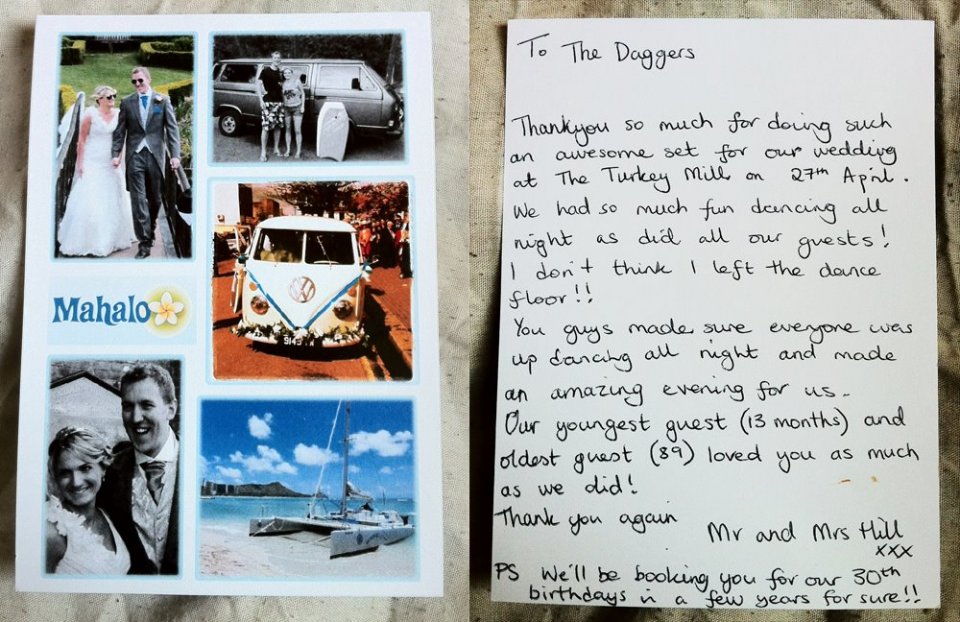 Mahalo
To The Daggers
Thankyou so much for doing such
an awesome set for our wedding
at The Turkey Mill on 27th April.
We had so much fun dancing all
night as did all our guests!
I don't think I left the dance
floor!!
You guys made sure everyone was
up dancing all night and made
an amazing evening for us.
Our youngest guest (13 months) and
oldest guest (89) loved you as much
as we did!
Thank you again
Mr and Mrs Hill
xxx
PS We'll be booking you for our 30th
birthdays in a few years for sure!!